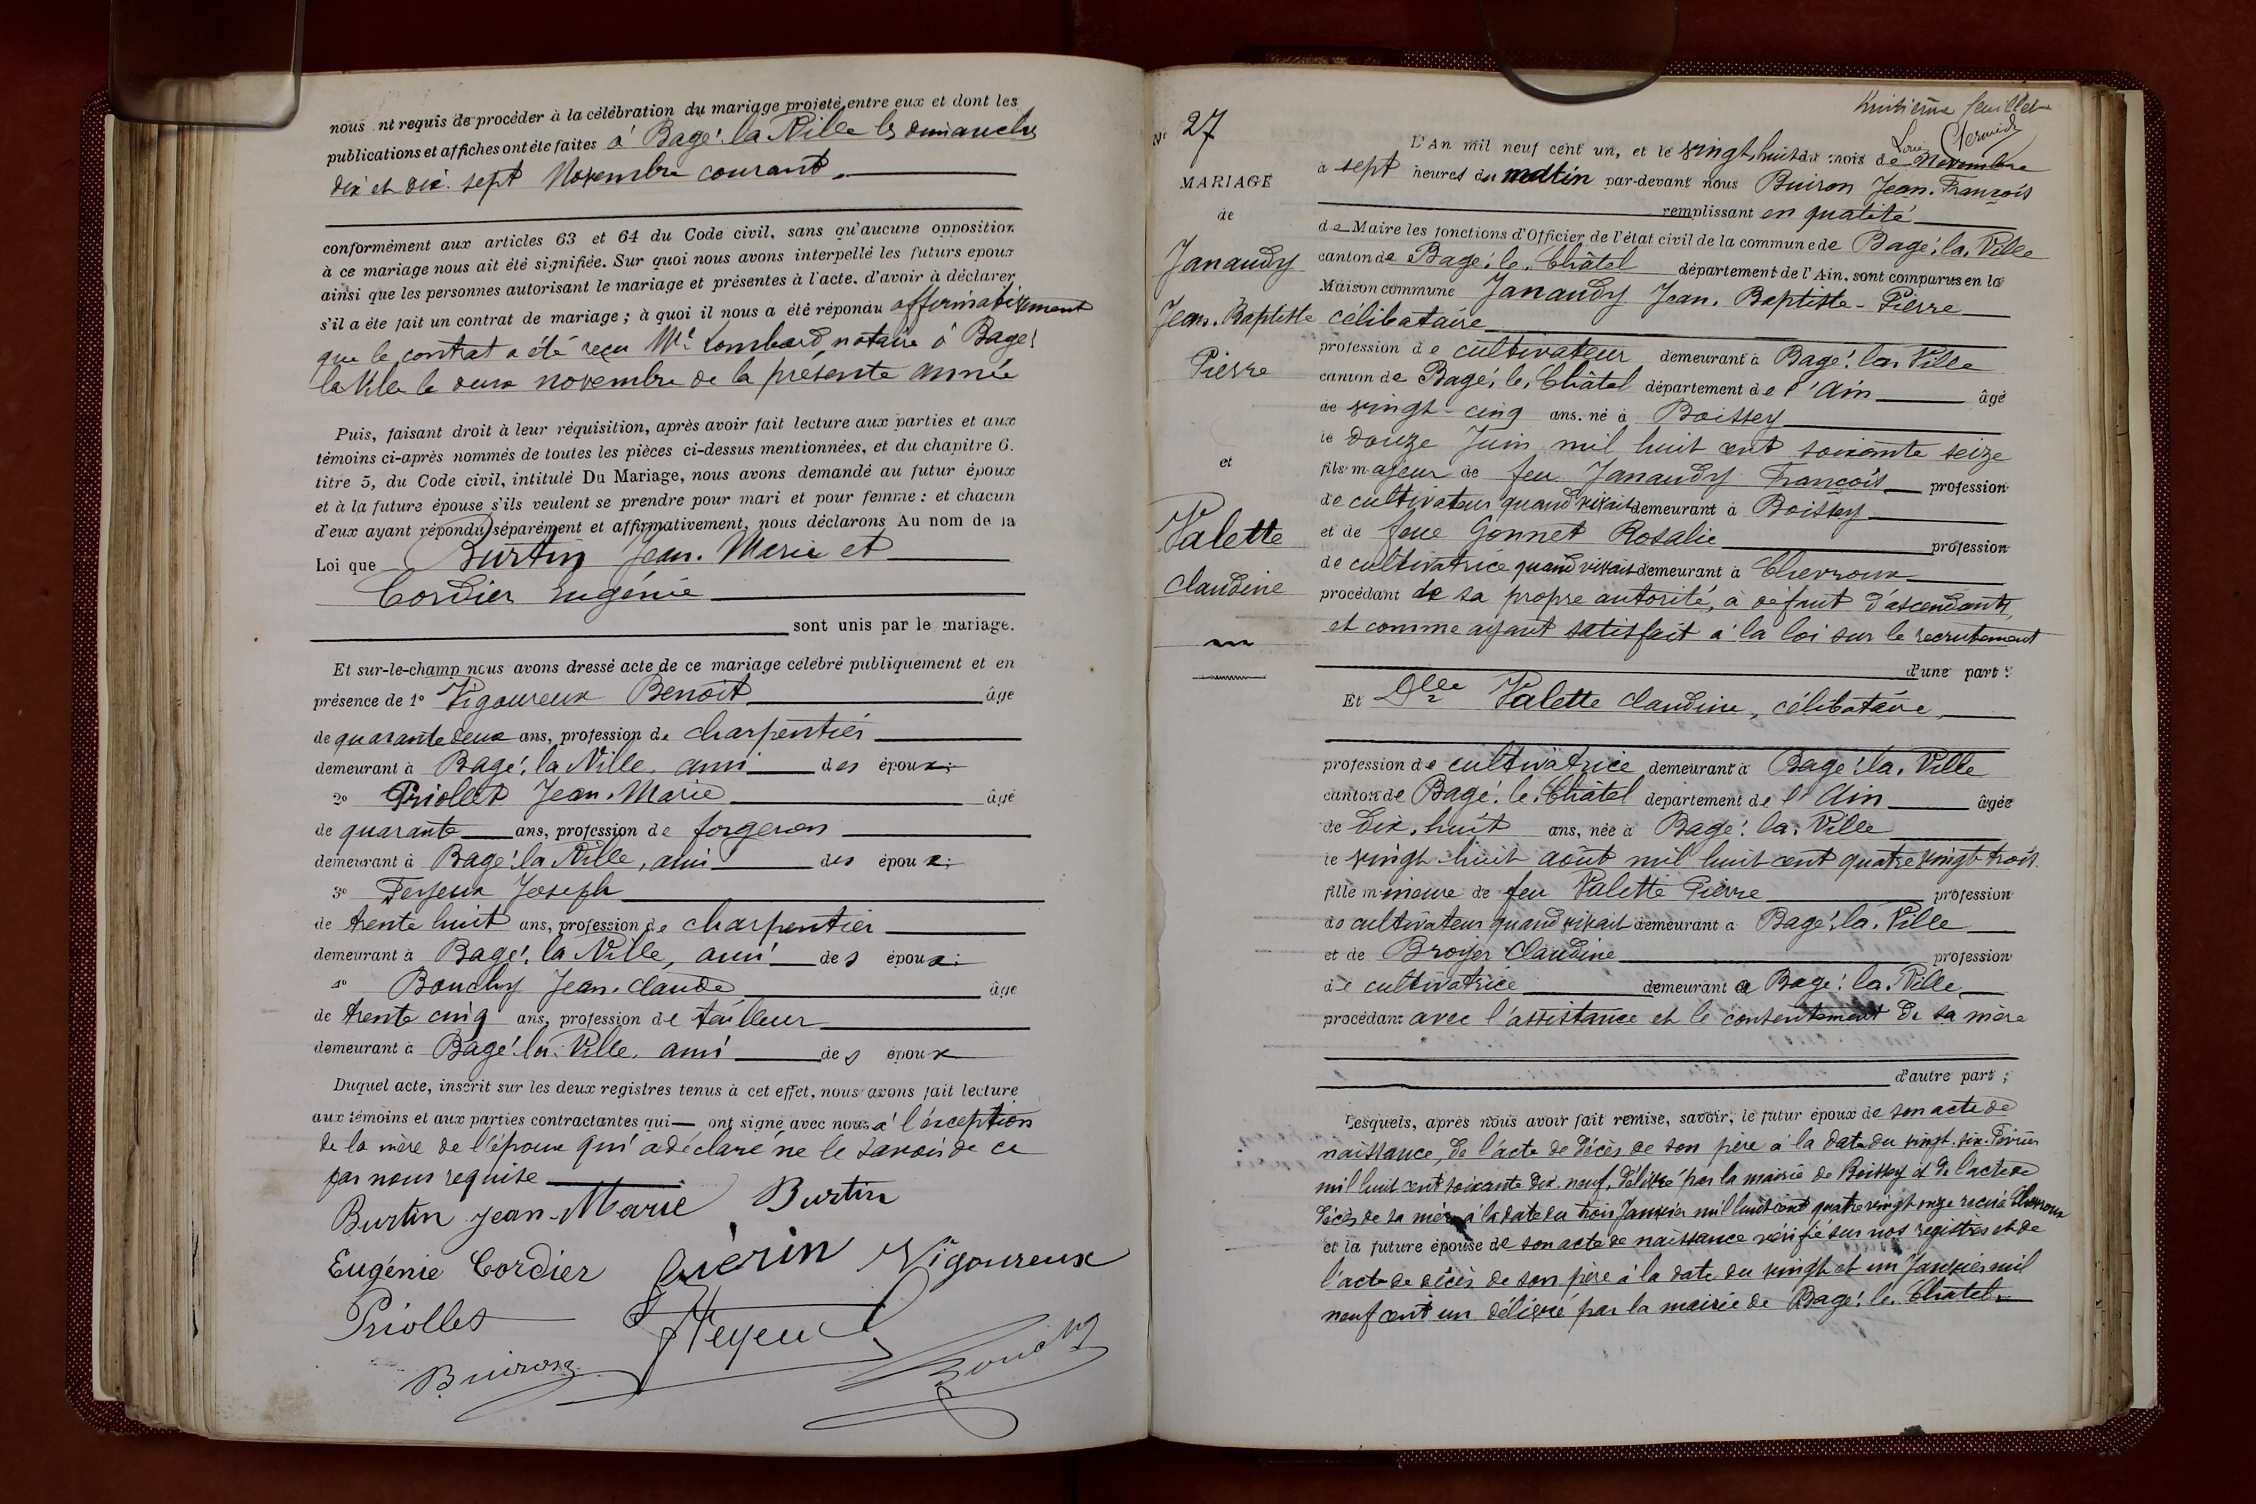 nous ont requis de procéder à la célébration du mariage projeté entre eux et dont les
publications et affiches ont été faites à Bagé-la-Ville les dimanches
dix et dix-sept Novembre courant.
conformément aux articles 63 et 64 du Code civil, sans qu'aucune opposition
à ce mariage nous ait été signifiée. Sur quoi nous avons interpellé les futurs epoux
ainsi que les personnes autorisant le mariage et présentes à l'acte, d'avoir à déclarer
s'il a été fait un contrat de mariage ; à quoi il nous a été répondu affirmativement
que le contrat a été reçu Me Lombard notaire à Bagé
la Ville le deux novembre de la présente année
Puis, faisant droit à leur réquisition, après avoir fait lecture aux parties et aux
témoins ci-après nommés de toutes les pièces ci-dessus mentionnées, et du chapitre 6.
titre 5, du Code civil, intitulé Du Mariage, nous avons demandé au futur époux
et à la future épouse s'ils veulent se prendre pour mari et pour femme : et chacun
d'eux ayant répondu séparément et affirmativement, nous déclarons Au nom de la
Loi que Burtin Jean-Marie et
Cordier Eugénie
sont unis par le mariage.
Et sur-le-champ nous avons dressé acte de ce mariage célébré publiquement et en
présence de 1° Vigoureux Benoit âgé
de quarante deux ans, profession de charpentier
demeurant à Bagé-la-Ville, ami des époux;
2° Priollet Jean-Marie âgé
de quarante ans, profession de forgeron
demeurant à Bagé-la-Ville, ami des époux;
3° Feyeux Joseph
de trente huit ans, profession de charpentier
demeurant à Bagé-la-Ville, ami des époux;
4° Bouchy Jean-Claude âgé
de trente cinq ans, profession de tailleur
demeurant à Bagé-la-Ville, ami des époux
Duquel acte, inscrit sur les deux registres tenus à cet effet, nous avons fait lecture
aux témoins et aux parties contractantes qui ont signé avec nous à l'exception
de la mère de l'époux qui a déclaré ne le savoir de ce
par nous requise
Burtin Jean-Marie Burtin
Eugénie Cordier Guérin Vigoureux
Priollet Feyeux
Buiron Bouchy
huitième feuillet
N° 27
MARIAGE
de
Janaudy
Jean-Baptiste
Pierre
et
Valette
Claudine
L'An mil neuf cent un, et le vingt huit du mois de Novembre
à sept heures du matin par-devant nous Buiron Jean-François
remplissant en qualité
de Maire les fonctions d'Officier de l'état civil de la commune de Bagé-la-Ville
canton de Bagé-le-Châtel département de l'Ain, sont comparus en la
Maison commune Janaudy Jean-Baptiste-Pierre
célibataire
profession de cultivateur demeurant à Bagé-la-Ville
canton de Bagé-le-Châtel département de l'Ain âgé
de vingt-cinq ans, né à Boissey
le douze Juin mil huit cent soixante seize
fils majeur de feu Janaudy François profession
de cultivateur quand vivait demeurant à Boissey
et de feue Gonnet Rosalie profession
de cultivatrice quand vivait demeurant à Chevroux
procédant de sa propre autorité, à défaut d'ascendants,
et comme ayant satisfait à la loi sur le recrutement
d'une part ;
Et Dlle Valette Claudine, célibataire,
profession de cultivatrice demeurant à Bagé-la-Ville
canton de Bagé-le-Châtel département de l'Ain âgée
de dix-huit ans, née à Bagé-la-Ville
le vingt-huit août mil huit cent quatre vingt-trois
fille mineure de feu Valette Pierre profession
de cultivateur quand vivait demeurant à Bagé-la-Ville
et de Broyer Claudine profession
de cultivatrice demeurant à Bagé-la-Ville
procédant avec l'assistance et le consentement de sa mère
d'autre part ;
Lesquels, après nous avoir fait remise, savoir, le futur époux de son acte de
naissance, de l'acte de décès de son père à la date du vingt-six Février
mil huit cent soixante dix-neuf, délivré par la mairie de Boissey et de l'acte de
décès de sa mère à la date du trois Janvier mil huit cent quatre vingt-onze reçu à Chevroux
et la future épouse de son acte de naissance vérifié sur nos registres et de
l'acte de décès de son père à la date du vingt et un Janvier mil
neuf cent un délivré par la mairie de Bagé-le-Châtel.